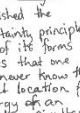 ished the
tainty principle
of its forms
s that one
never know th
t location f
rgy of an